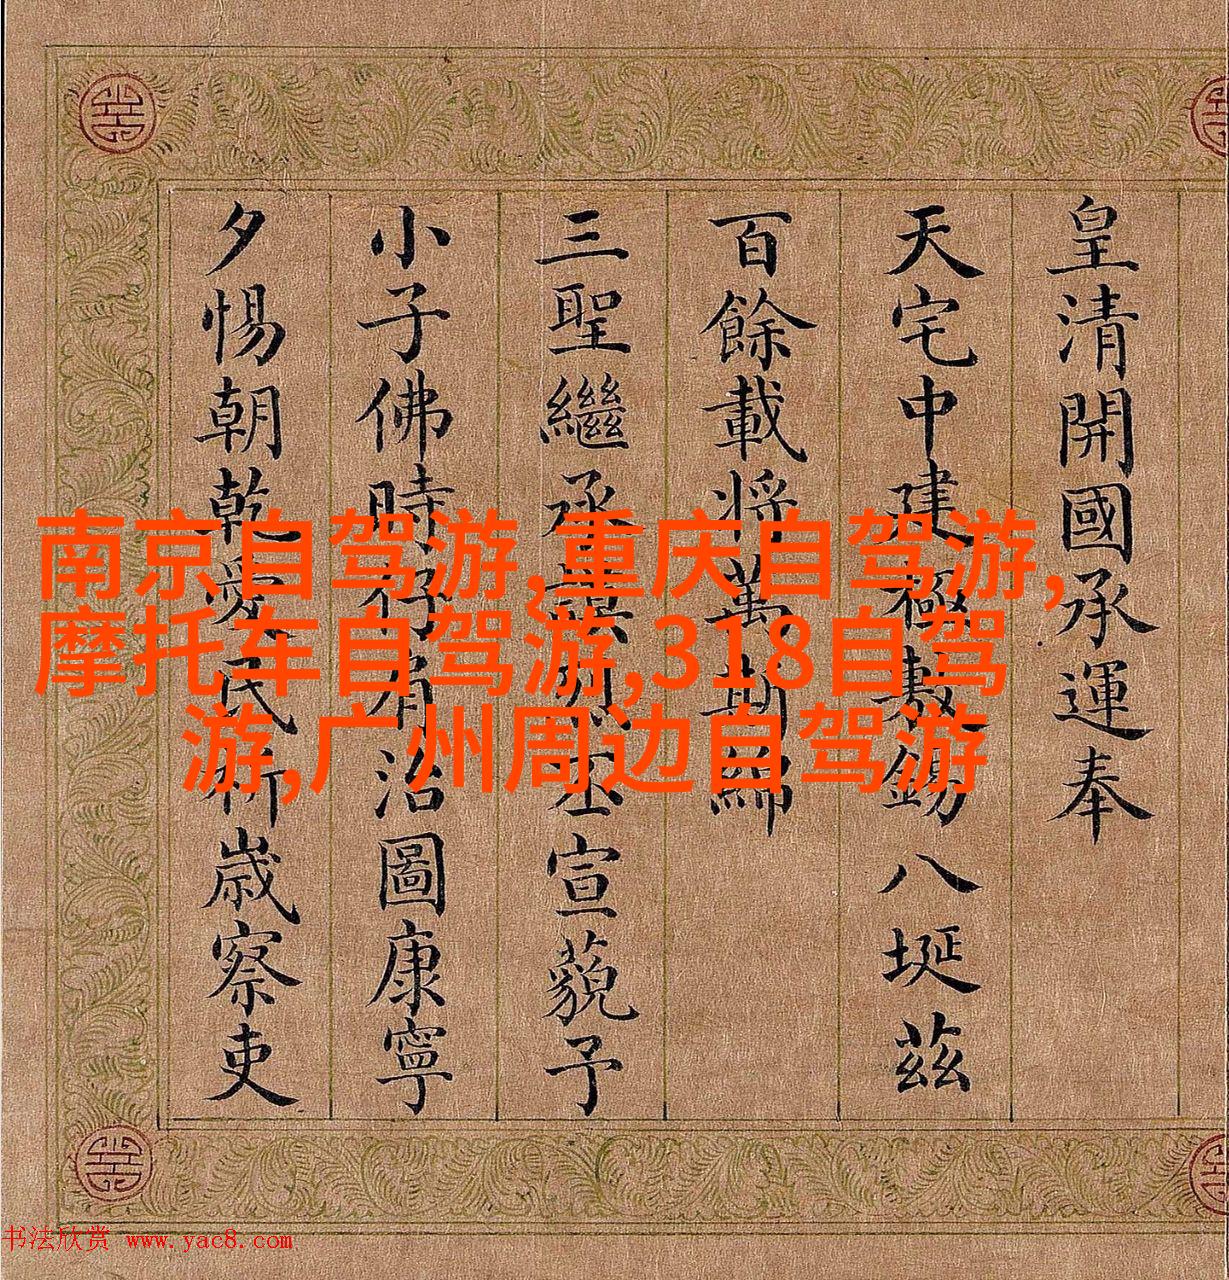 皇清開國承運奉
天宅中建極敷錫八埏茲
百餘載將萬綿
三聖繼承謨烈丕宣藐予
小子佛時仔肩治圖康寧
夕惕朝乾愛民祈歲察吏
南京自驾游,重庆自驾游,
摩托车自驾游,318自驾
游,广州周边自驾游
书法欣赏 www.yac8.com